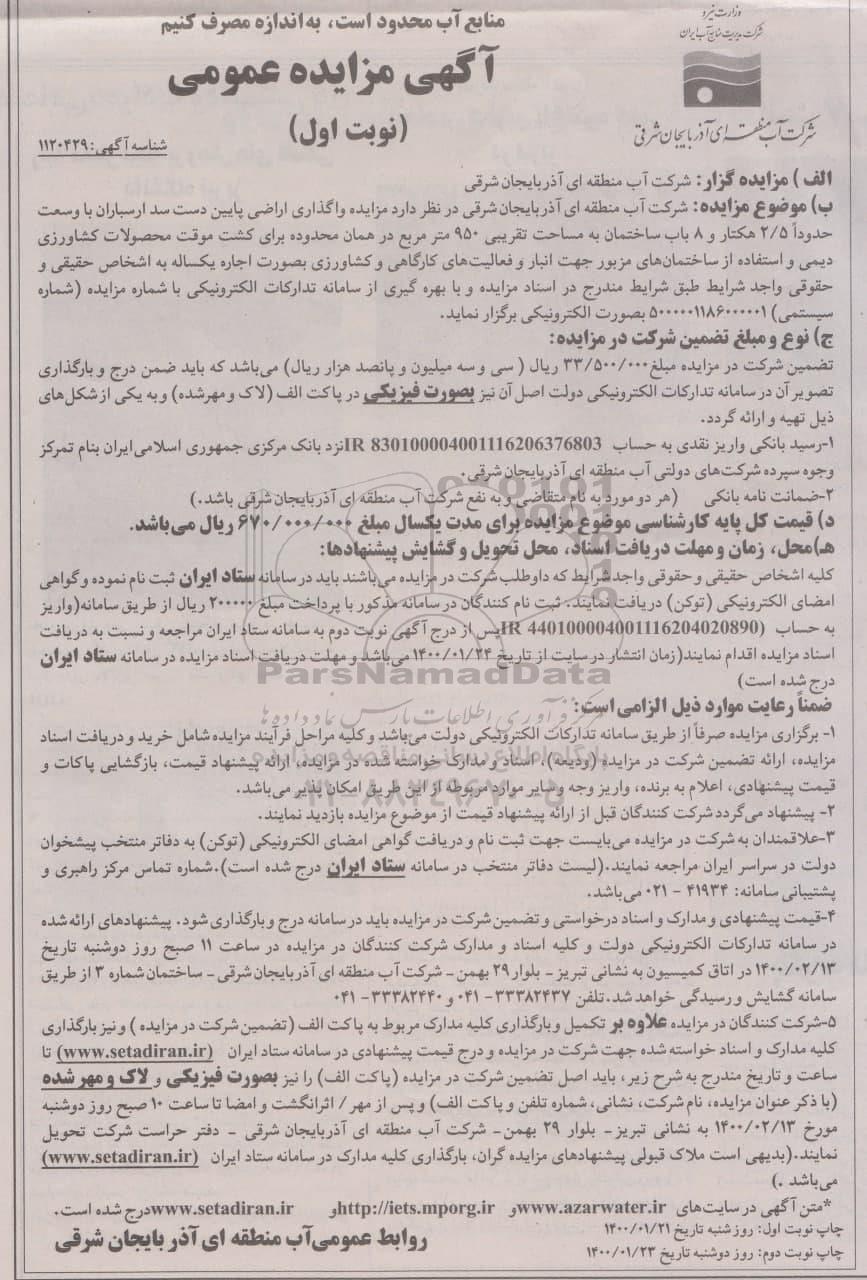 منابع آب محدود است، به اندازه مصرف کنیم
وزارت نیرو
شرکت مدیریت منابع آب ایران
آگهی مزایده عمومی
(نوبت اول)
شرکت آب منطقه ای آذربایجان شرقی
شناسه آگهی: ۱۱۲۰۴۲۹
الف) مزایده گزار: شرکت آب منطقه ای آذربایجان شرقی
ب) موضوع مزایده: شرکت آب منطقه ای آذربایجان شرقی در نظر دارد مزایده واگذاری اراضی پایین دست سد ارسباران با وسعت
حدوداً ۲/۵ هکتار و ۸ باب ساختمان به مساحت تقریبی ۹۵۰ متر مربع در همان محدوده برای کشت موقت محصولات کشاورزی
دیمی و استفاده از ساختمان‌های مزبور جهت انبار و فعالیت‌های کارگاهی و کشاورزی بصورت اجاره یکساله به اشخاص حقیقی و
حقوقی واجد شرایط طبق شرایط مندرج در اسناد مزایده و با بهره گیری از سامانه تدارکات الکترونیکی با شماره مزایده (شماره
سیستمی) ۵۰۰۰۰۰۱۱۸۶۰۰۰۰۰۱ بصورت الکترونیکی برگزار نماید.
ج) نوع و مبلغ تضمین شرکت در مزایده:
تضمین شرکت در مزایده مبلغ ۳۳/۵۰۰/۰۰۰ ریال ( سی و سه میلیون و پانصد هزار ریال) می‌باشد که باید ضمن درج و بارگذاری
تصویر آن در سامانه تدارکات الکترونیکی دولت اصل آن نیز بصورت فیزیکی در پاکت الف (لاک و مهرشده) و به یکی از شکل‌های
ذیل تهیه و ارائه گردد.
۱-رسید بانکی واریز نقدی به حساب IR 830100004001116206376803نزد بانک مرکزی جمهوری اسلامی ایران بنام تمرکز
وجوه سپرده شرکت‌های دولتی آب منطقه ای آذربایجان شرقی.
۲-ضمانت نامه بانکی (هر دو مورد به نام متقاضی و به نفع شرکت آب منطقه ای آذربایجان شرقی باشد.)
د) قیمت کل پایه کارشناسی موضوع مزایده برای مدت یکسال مبلغ ۶۷۰/۰۰۰/۰۰۰ ریال می‌باشد.
هـ)محل، زمان و مهلت دریافت اسناد، محل تحویل و گشایش پیشنهادها:
کلیه اشخاص حقیقی و حقوقی واجد شرایط که داوطلب شرکت در مزایده می‌باشند باید در سامانه ستاد ایران ثبت نام نموده و گواهی
امضای الکترونیکی (توکن) دریافت نمایند. ثبت نام کنندگان در سامانه مذکور با پرداخت مبلغ ۲۰۰۰۰۰ ریال از طریق سامانه(واریز
به حساب (IR 440100004001116204020890پس از درج آگهی نوبت دوم به سامانه ستاد ایران مراجعه و نسبت به دریافت
اسناد مزایده اقدام نمایند(زمان انتشار در سایت از تاریخ ۱۴۰۰/۰۱/۲۴ می‌باشد و مهلت دریافت اسناد مزایده در سامانه ستاد ایران
درج شده است)
ParsNamadData
مرکز فرآوری اطلاعات پارس نماد داده ها
ضمناً رعایت موارد ذیل الزامی است:
۱- برگزاری مزایده صرفاً از طریق سامانه تدارکات الکترونیکی دولت می‌باشد و کلیه مراحل فرآیند مزایده شامل خرید و دریافت اسناد
مزایده، ارائه تضمین شرکت در مزایده (ودیعه)، اسناد و مدارک خواسته شده در مزایده، ارائه پیشنهاد قیمت، بازگشایی پاکات و
قیمت پیشنهادی، اعلام به برنده، واریز وجه و سایر موارد مربوطه از این طریق امکان پذیر می‌باشد.
۲- پیشنهاد می‌گردد شرکت کنندگان قبل از ارائه پیشنهاد قیمت از موضوع مزایده بازدید نمایند.
۳-علاقمندان به شرکت در مزایده می‌بایست جهت ثبت نام و دریافت گواهی امضای الکترونیکی (توکن) به دفاتر منتخب پیشخوان
دولت در سراسر ایران مراجعه نمایند.(لیست دفاتر منتخب در سامانه ستاد ایران درج شده است).شماره تماس مرکز راهبری و
پشتیبانی سامانه: ۴۱۹۳۴ - ۰۲۱ می‌باشد.
۴-قیمت پیشنهادی و مدارک و اسناد درخواستی و تضمین شرکت در مزایده باید در سامانه درج و بارگذاری شود. پیشنهادهای ارائه شده
در سامانه تدارکات الکترونیکی دولت و کلیه اسناد و مدارک شرکت کنندگان در مزایده در ساعت ۱۱ صبح روز دوشنبه تاریخ
۱۴۰۰/۰۲/۱۳ در اتاق کمیسیون به نشانی تبریز - بلوار ۲۹ بهمن - شرکت آب منطقه ای آذربایجان شرقی - ساختمان شماره ۳ از طریق
سامانه گشایش و رسیدگی خواهد شد.تلفن ۳۳۳۸۲۴۳۷- ۰۴۱ و ۳۳۳۸۲۴۴۰- ۰۴۱
۵-شرکت کنندگان در مزایده علاوه بر تکمیل و بارگذاری کلیه مدارک مربوط به پاکت الف (تضمین شرکت در مزایده ) و نیز بارگذاری
کلیه مدارک و اسناد خواسته شده جهت شرکت در مزایده و درج قیمت پیشنهادی در سامانه ستاد ایران (www.setadiran.ir) تا
ساعت و تاریخ مندرج به شرح زیر، باید اصل تضمین شرکت در مزایده (پاکت الف) را نیز بصورت فیزیکی و لاک و مهر شده
(با ذکر عنوان مزایده، نام شرکت، نشانی، شماره تلفن و پاکت الف) و پس از مهر / اثرانگشت و امضا تا ساعت ۱۰ صبح روز دوشنبه
مورخ ۱۴۰۰/۰۲/۱۳ به نشانی تبریز- بلوار ۲۹ بهمن- شرکت آب منطقه ای آذربایجان شرقی - دفتر حراست شرکت تحویل
نمایند.(بدیهی است ملاک قبولی پیشنهادهای مزایده گران، بارگذاری کلیه مدارک در سامانه ستاد ایران (www.setadiran.ir)
می‌باشد .)
*متن آگهی در سایت‌های www.azarwater.ir و http://iets.mporg.ir و www.setadiran.ir درج شده است.
چاپ نوبت اول: روز شنبه تاریخ ۱۴۰۰/۰۱/۲۱
چاپ نوبت دوم: روز دوشنبه تاریخ ۱۴۰۰/۰۱/۲۳
روابط عمومی آب منطقه ای آذربایجان شرقی